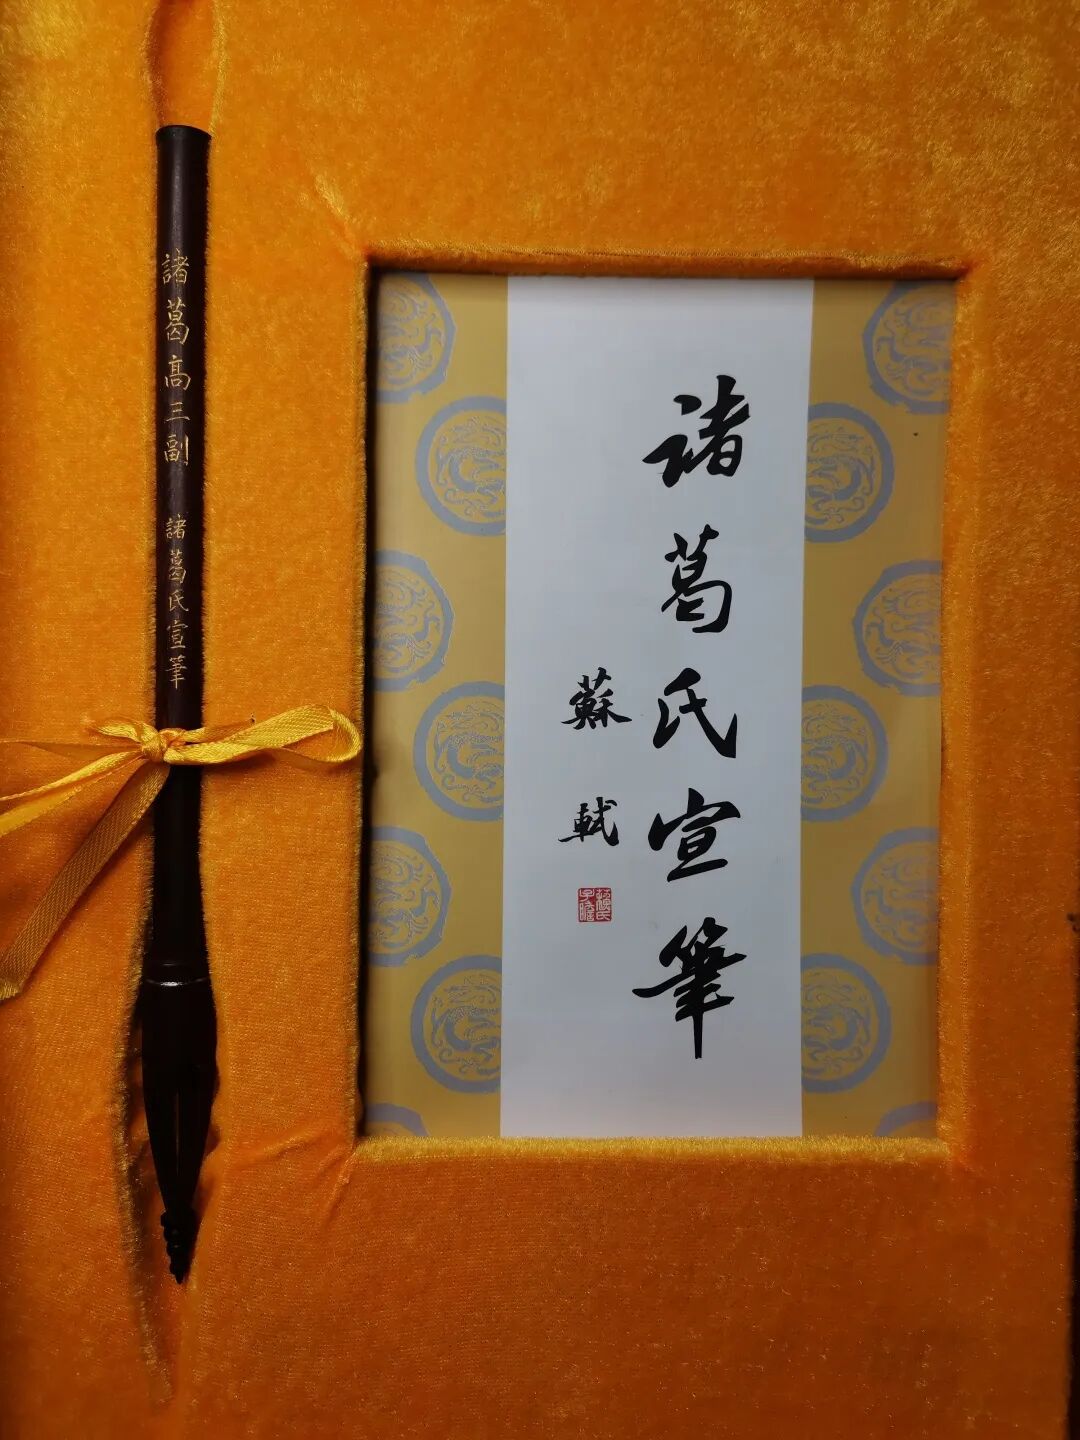 諸葛高三副 諸葛氏宣筆
諸葛氏宣筆
蘇軾
蘇氏子瞻